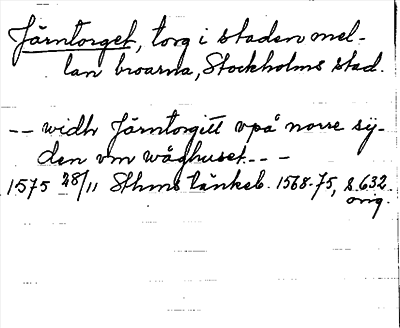 Järntorget, torg i staden mel-
lan broarna, Stockholms stad.
-- widh Järntorgitt vpå norre sÿ-
den vm wåghuset - - -
1575 28/11 Sthms tänkeb. 1568-75, s. 632.
orig.